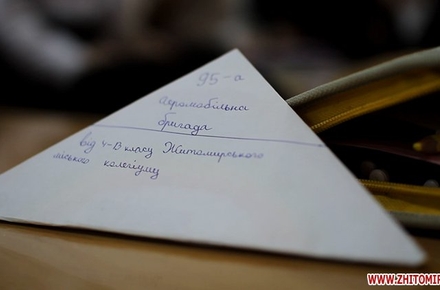 95-а
Аеромобільна
бригада
від 4-В класу Житомирського
міського колегіуму
WWW.ZHITOMIR